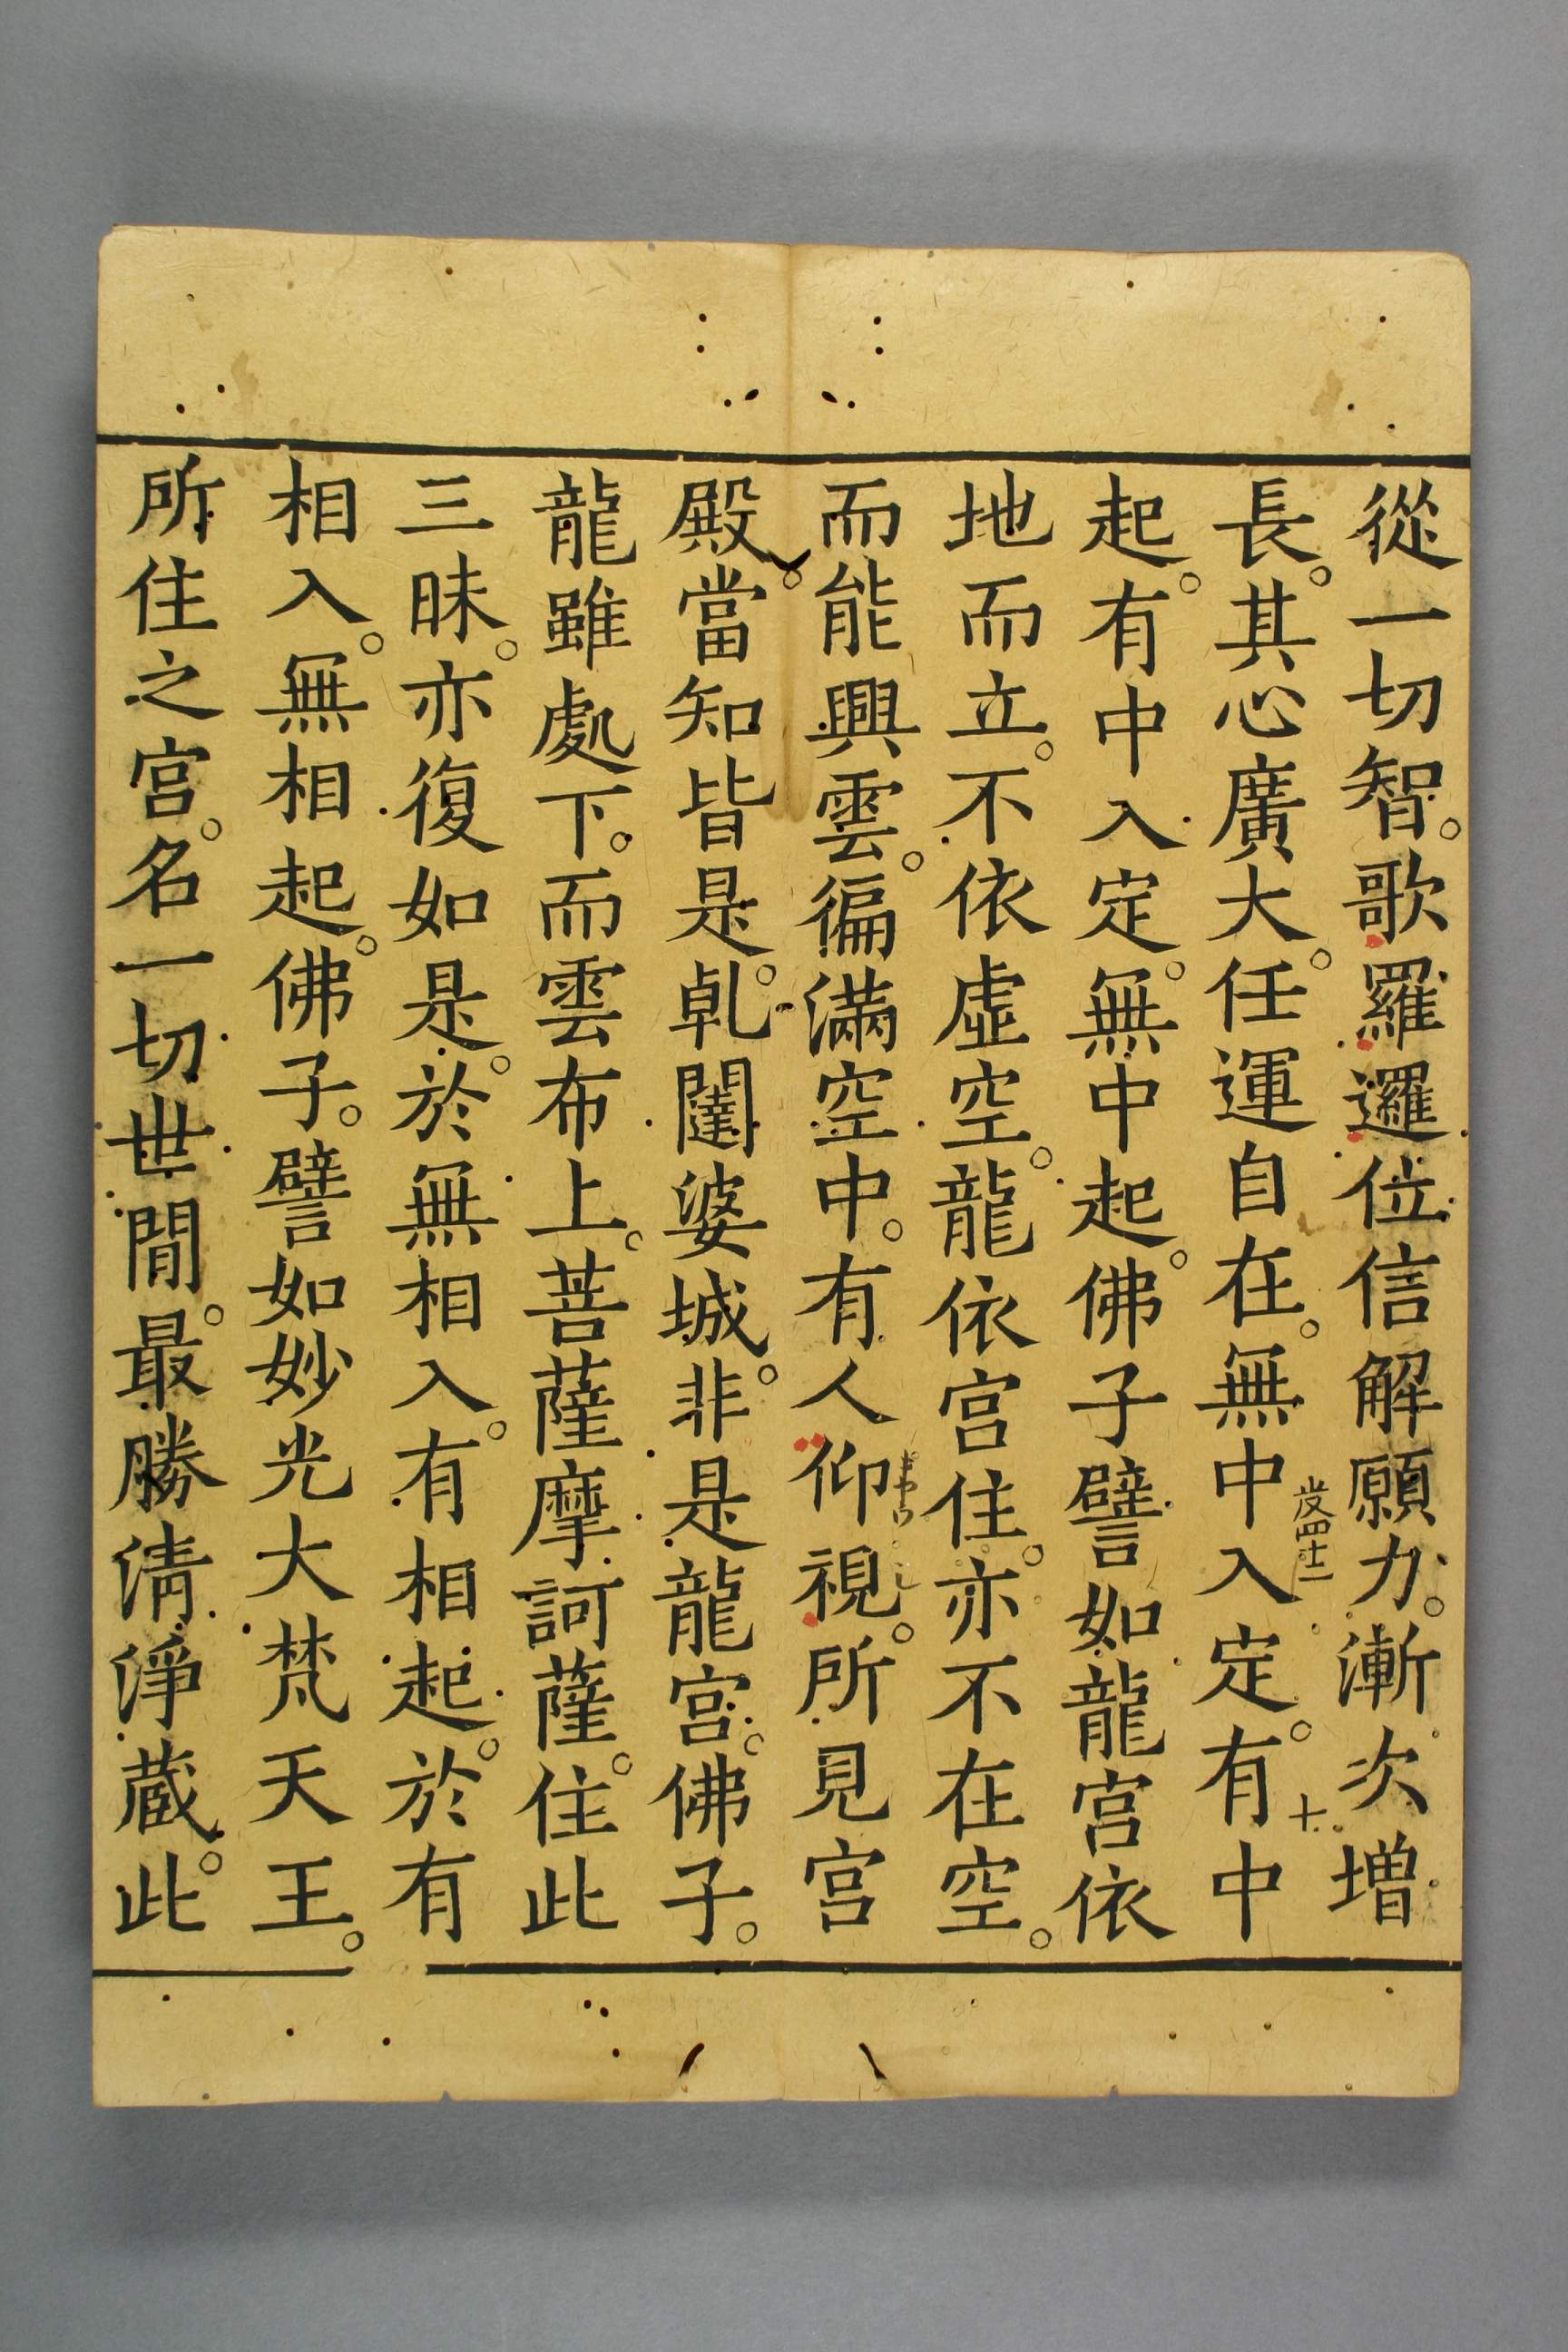 從一切智。歌羅邏位信解願力。漸次增
長。其心廣大。任運自在。無中入定。有中
起。有中入定。無中起。佛子譬如龍宮依
地而立。不依虛空。龍依宮住。亦不在空。
而能興雲。徧滿空中。有人仰視。所見宮
殿。當知皆是。乹闥婆城。非是龍宮。佛子。
龍雖處下。而雲布上。菩薩摩訶薩。住此
三昧。亦復如是。於無相入。有相起。於有
相入。無相起。佛子。譬如妙光大梵天王。
所住之宮。名一切世間。最勝淸淨蔵。此
十